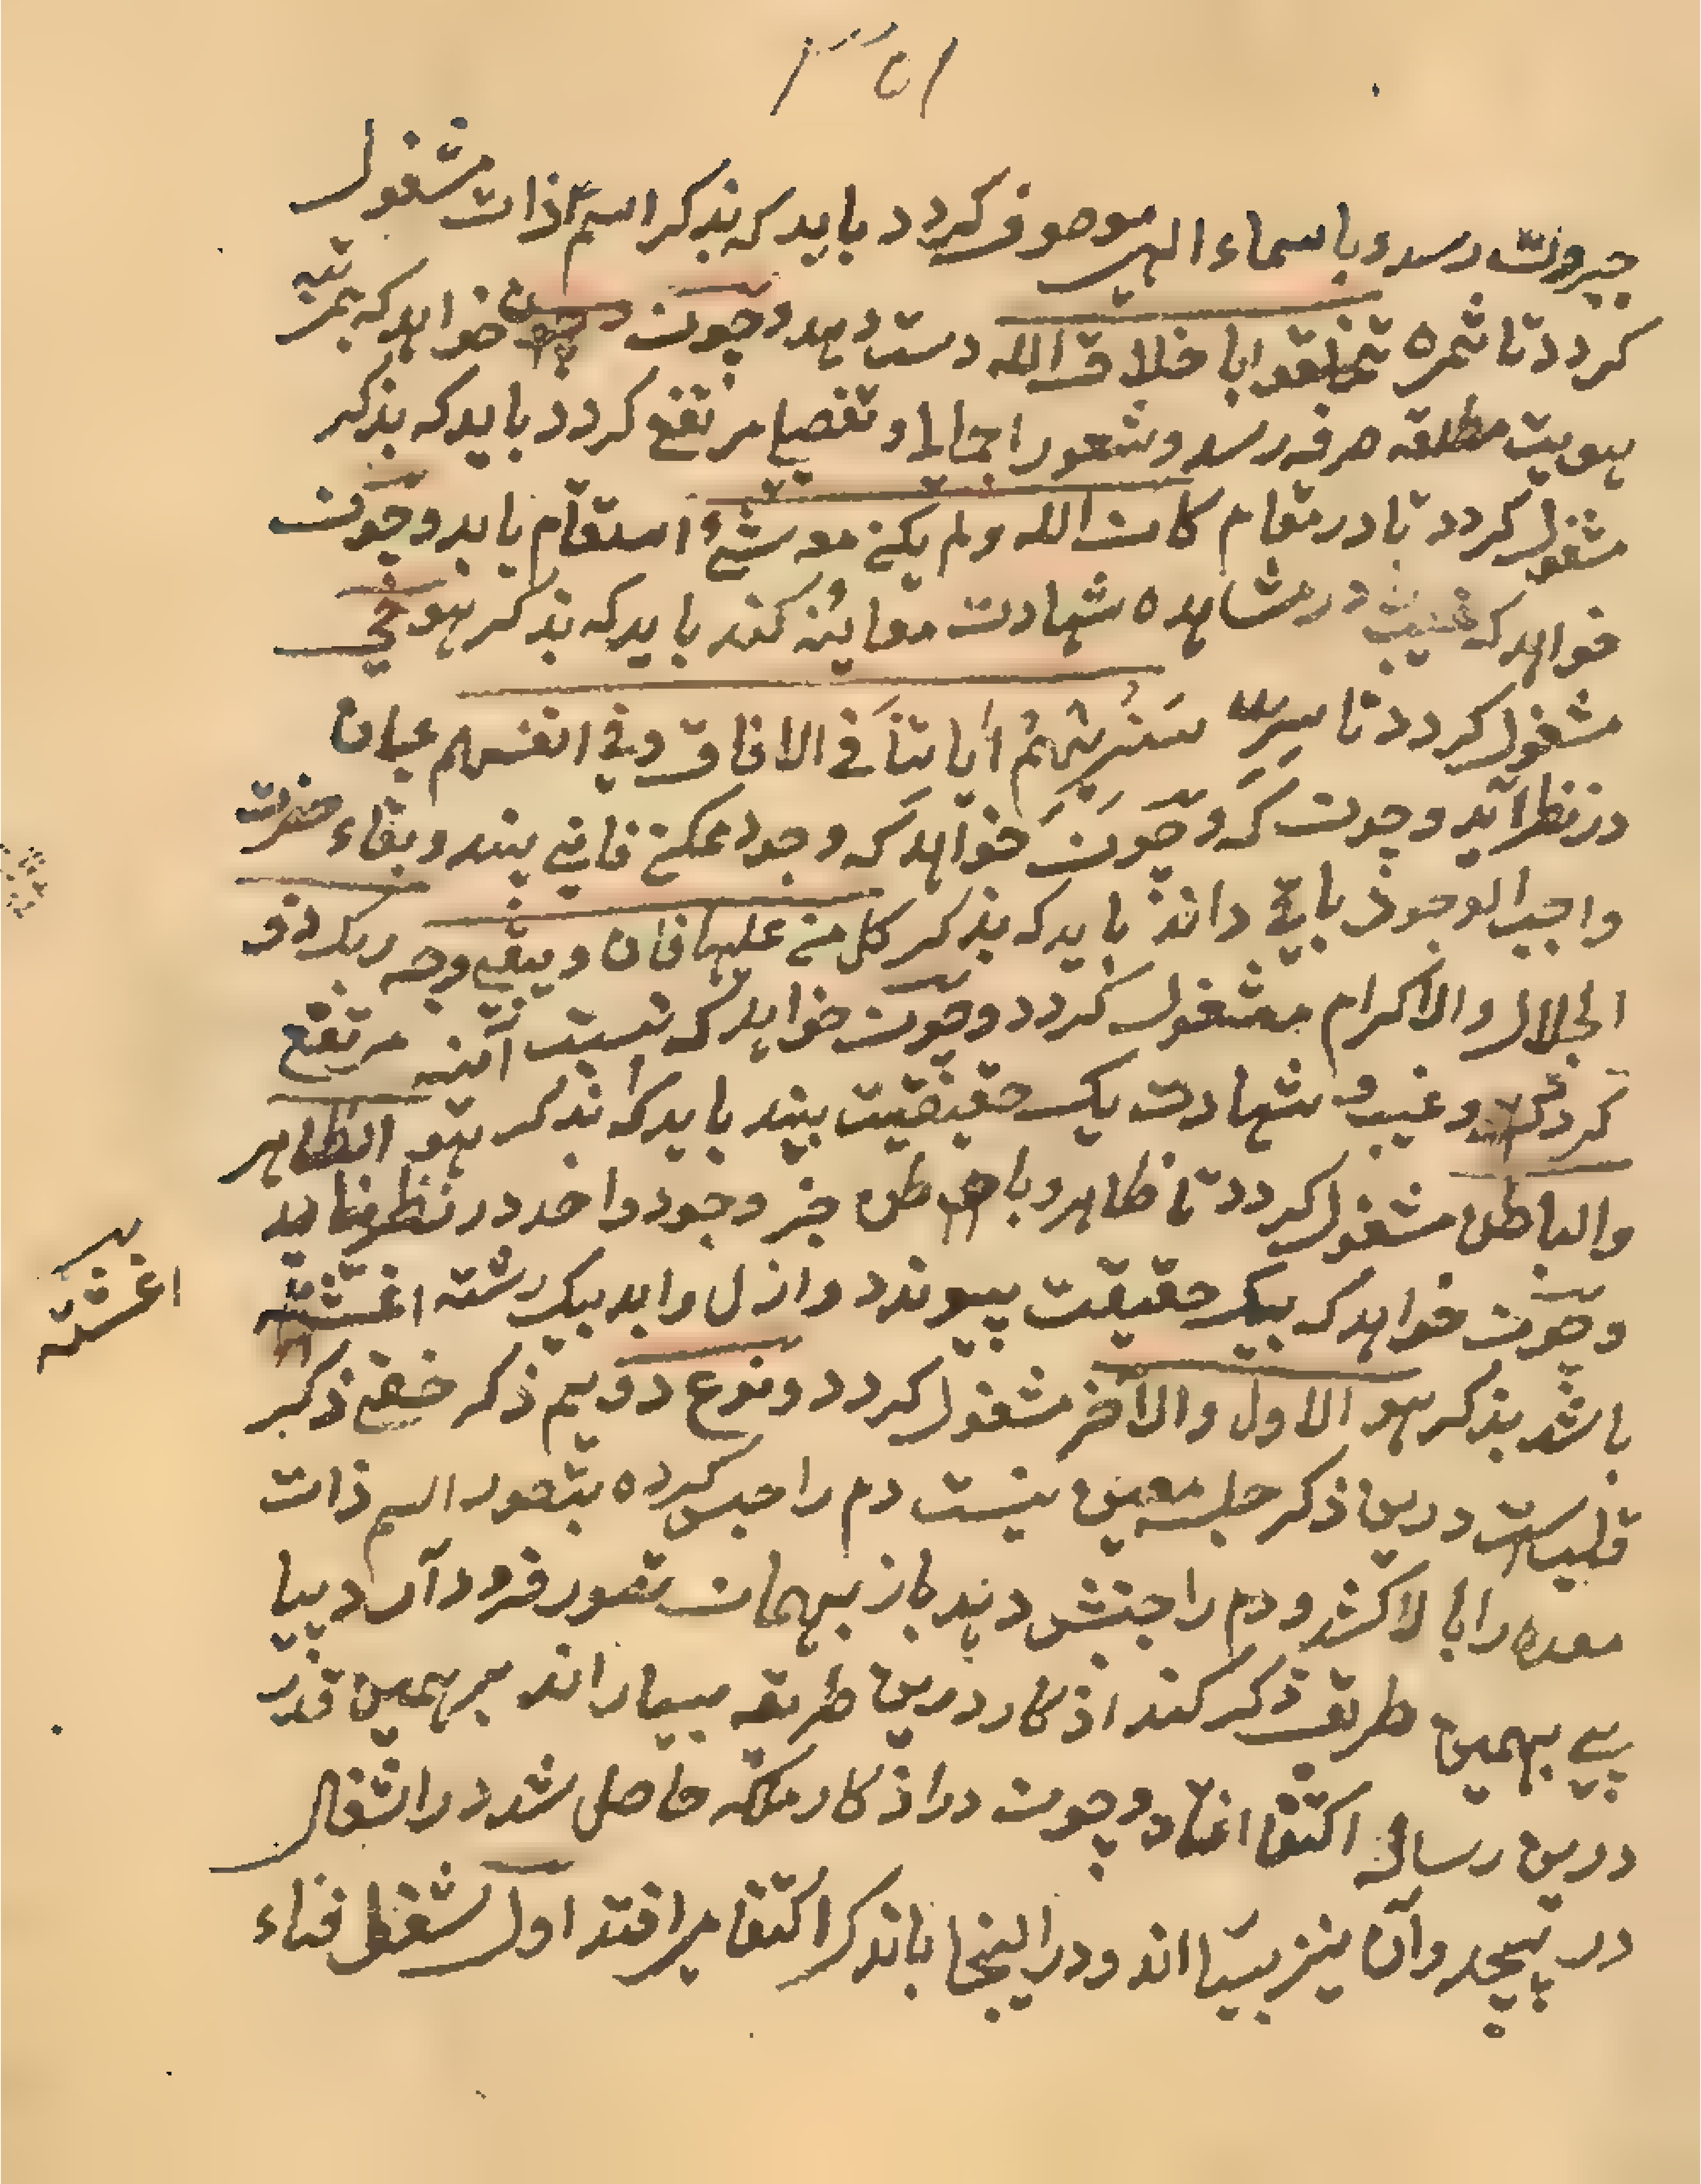 جبروت رسد و باسماء الہی موصوف کردد باید کہ بذکر اسم ذات مشغول
کردد تا ثمرہ تخلقوا باخلاق اللہ دست دہد و چون خواہد کہ بمرتبہ
ہویت مطلقہ صرفہ رسد و شعور اجمالا و تفصیلا مرتفع کردد باید کہ بذکر
مشغول کردد تا در مقام کان اللہ ولم یکن معہ شیٔ استقام یابد و چون
خواہد کہ غیب در مشاہدہ شہادت معاینہ کند باید کہ بذکر ہو حی
مشغول کردد تا سر سَنُرِیْہُمْ اٰیاتنا فی الافاق وفی انفسہم عیان
در نظر آید و چون کہ و چون خواہد کہ وجود ممکن فانی بیند و بقاء حضرت
واجب الوجود باقی داند باید کہ بذکر کل من علیہا فان ویبقی وجہ ربک ذو
الجلال والاکرام مشغول کردد و چون خواہد کہ نسبت آئینہ مرتفع
کردد و غیب و شہادت یک حقیقت بیند باید کہ بذکر ہو الظاہر
والباطن مشغول کردد تا ظاہر و باطن جز وجود واحد در نظر نیاید
و چون خواہد کہ بیک حقیقت پیوندد و ازل و ابد بیک رشتہ اغشتہ
باشد بذکر ہو الاول والآخر مشغول کردد و نوع دویم ذکر خفی ذکر
قلبیست درین ذکر جلسہ معین نیست دم را حبس کردہ بتصور اسم ذات
معدہ را بالا کشد و دم را جنبش دہد باز بہمان تصور فرود آرد پیا
پی بہمین طریق ذکر کند اذکار درین طریقہ بسیاراند بر ہمین قدر
درین رسالہ اکتفا افتاد و چون در اذکار ملکہ حاصل شد در اشغال
در پیچد و آن نیز بسیا اند و در اینجا باند کر اکتفا می افتد اول شغل فناء
اغشتہ